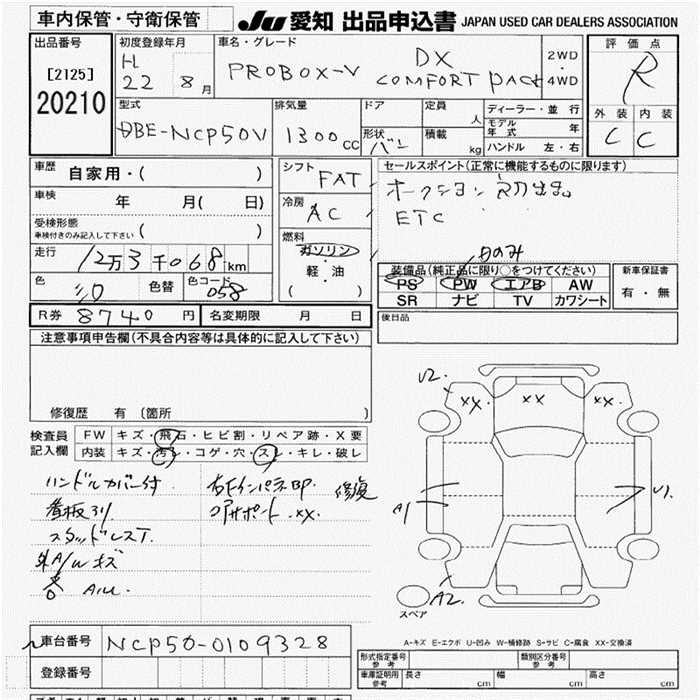 車内保管・守衛保管
JU 愛知 出品申込書 JAPAN USED CAR DEALERS ASSOCIATION
出品番号
[2125]
20210
初度登録年月
H
22 8 月
車名・グレード
PROBOX-V DX
COMFORT PACK
2WD
4WD
評価点
R
外装 内装
C C
型式
DBE-NCP50V
排気量
1300 CC
ドア
形状 バン
定員
人
積載
kg
ディーラー・並行
モデル年式 年
ハンドル 左・右
車歴
自家用・( )
車検
年 月( 日)
受検形態
車検付きのみ記入して下さい ( )
走行
12万3千068km
色
シロ
色替
色コード
058
シフト
FAT
冷房
AC
燃料
ガソリン・
軽・油
( )
セールスポイント(正常に機能するものに限ります)
オークション初出品
ETC
のみ
装備品(純正品に限り○をつけてください)
PS PW エアB AW
SR ナビ TV カワシート
新車保証書
有・無
R券 8740 円
名変期限 月 日
後日品
注意事項申告欄(不具合内容等は具体的に記入して下さい)
修復歴 有 (箇所 )
検査員
記入欄
FW キズ・飛石・ヒビ割・リペア跡・X要
内装 キズ・汚れ・コゲ・穴・スレ・キレ・破レ
ハンドルカバー付
看板
スタッドレスT
外A/Wキズ
修復
サポート XX
U2
XX XX XX
A1
U1
A2
スペア
A-キズ E-エクボ U-凹み W-補修跡 S-サビ C-腐食 XX-交換済
車台番号 NCP50-0109328
登録番号
形式指定番号
参考
類別区分番号
参考
車庫証明用
参考
長さ cm 幅 cm 高さ cm